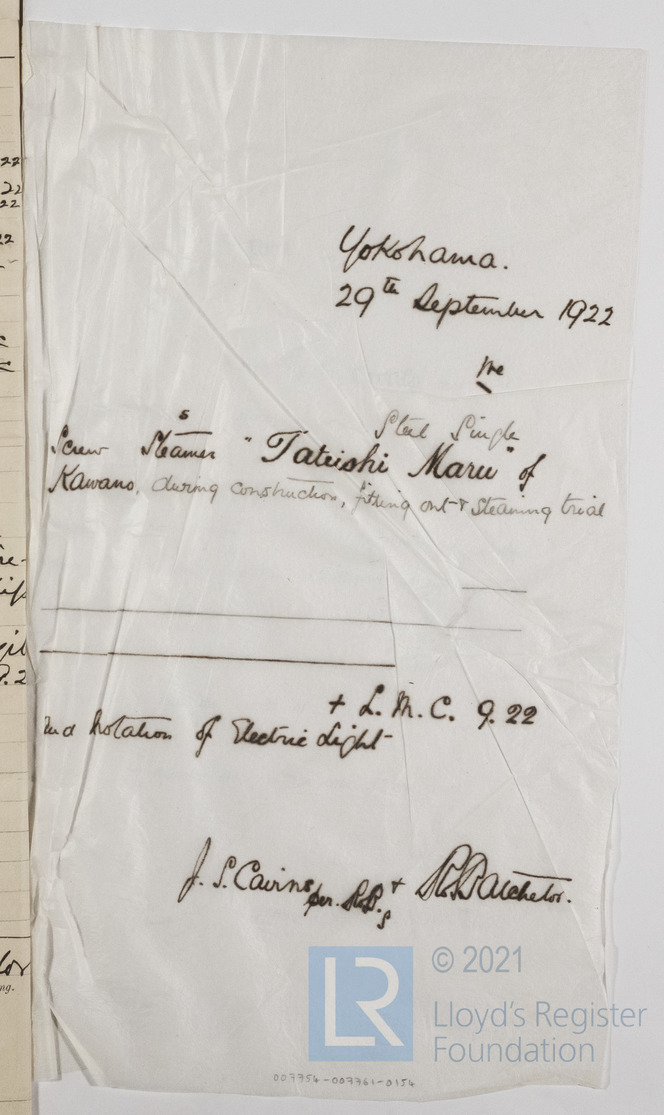 Yokohama.
29th September 1922
We
Steel Single
Screw Steamer "Tateishi Maru" of
s
Kawano, during construction, fitting out & Steaming trial
+ L.M.C. 9.22
and Notation of Electric Light
J. S. Cairns per. R.B. & R. Batchelor.
© 2021
LR
Lloyd's Register
Foundation
007754-007761-0154
22
22
22
22
ng.